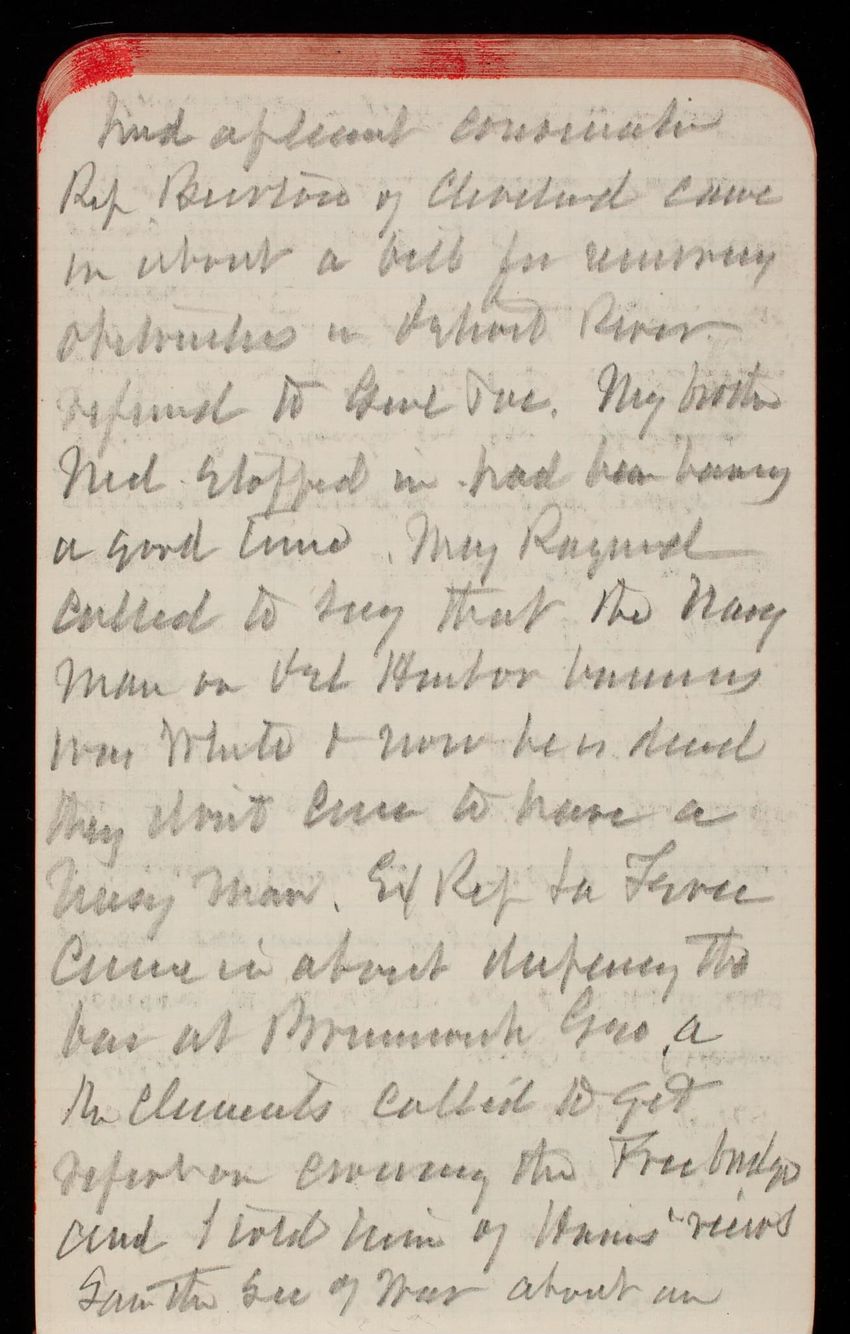 had a pleasant conversation
Rep Burton of Cleveland came
in about a bill for removing
obstructions in Detroit River
referred to Genl Poe. My brother
Ned stopped in had been having
a good time. May Raymond
called to say that the Navy
Man on Harbor business
was White & now he is dead
they don't care to have a
Navy Man. Ex Rep
Came in about deepening the
bar at Brunswick Geo, a
Mr Clements called to get
report on crossing the Free bridge
and I told him of views
Saw the Sec of War about an